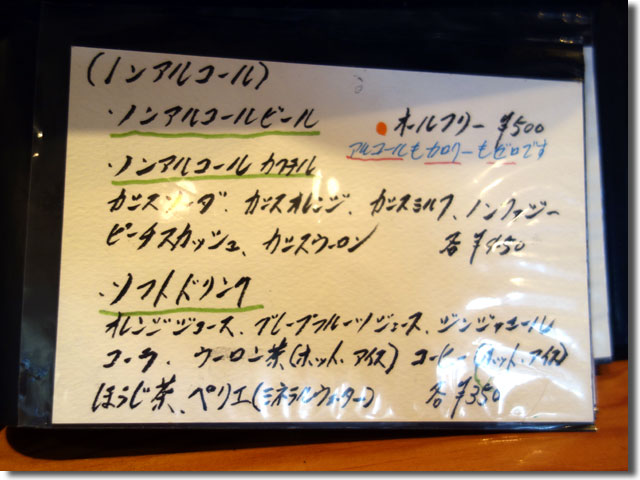 (ノンアルコール)
・ノンアルコールビール ●オールフリー ¥500
アルコールもカロリーもゼロです
・ノンアルコール カクテル
カシスソーダ、カシスオレンジ、カシスミルク、ノンファジー
ピーチスカッシュ、カシスウーロン 各¥450
・ソフトドリンク
オレンジジュース、グレープフルーツジュース、ジンジャエール
コーラ、ウーロン茶(ホット・アイス) コーヒー(ホット・アイス)
ほうじ茶、ペリエ(ミネラルウォーター) 各¥350